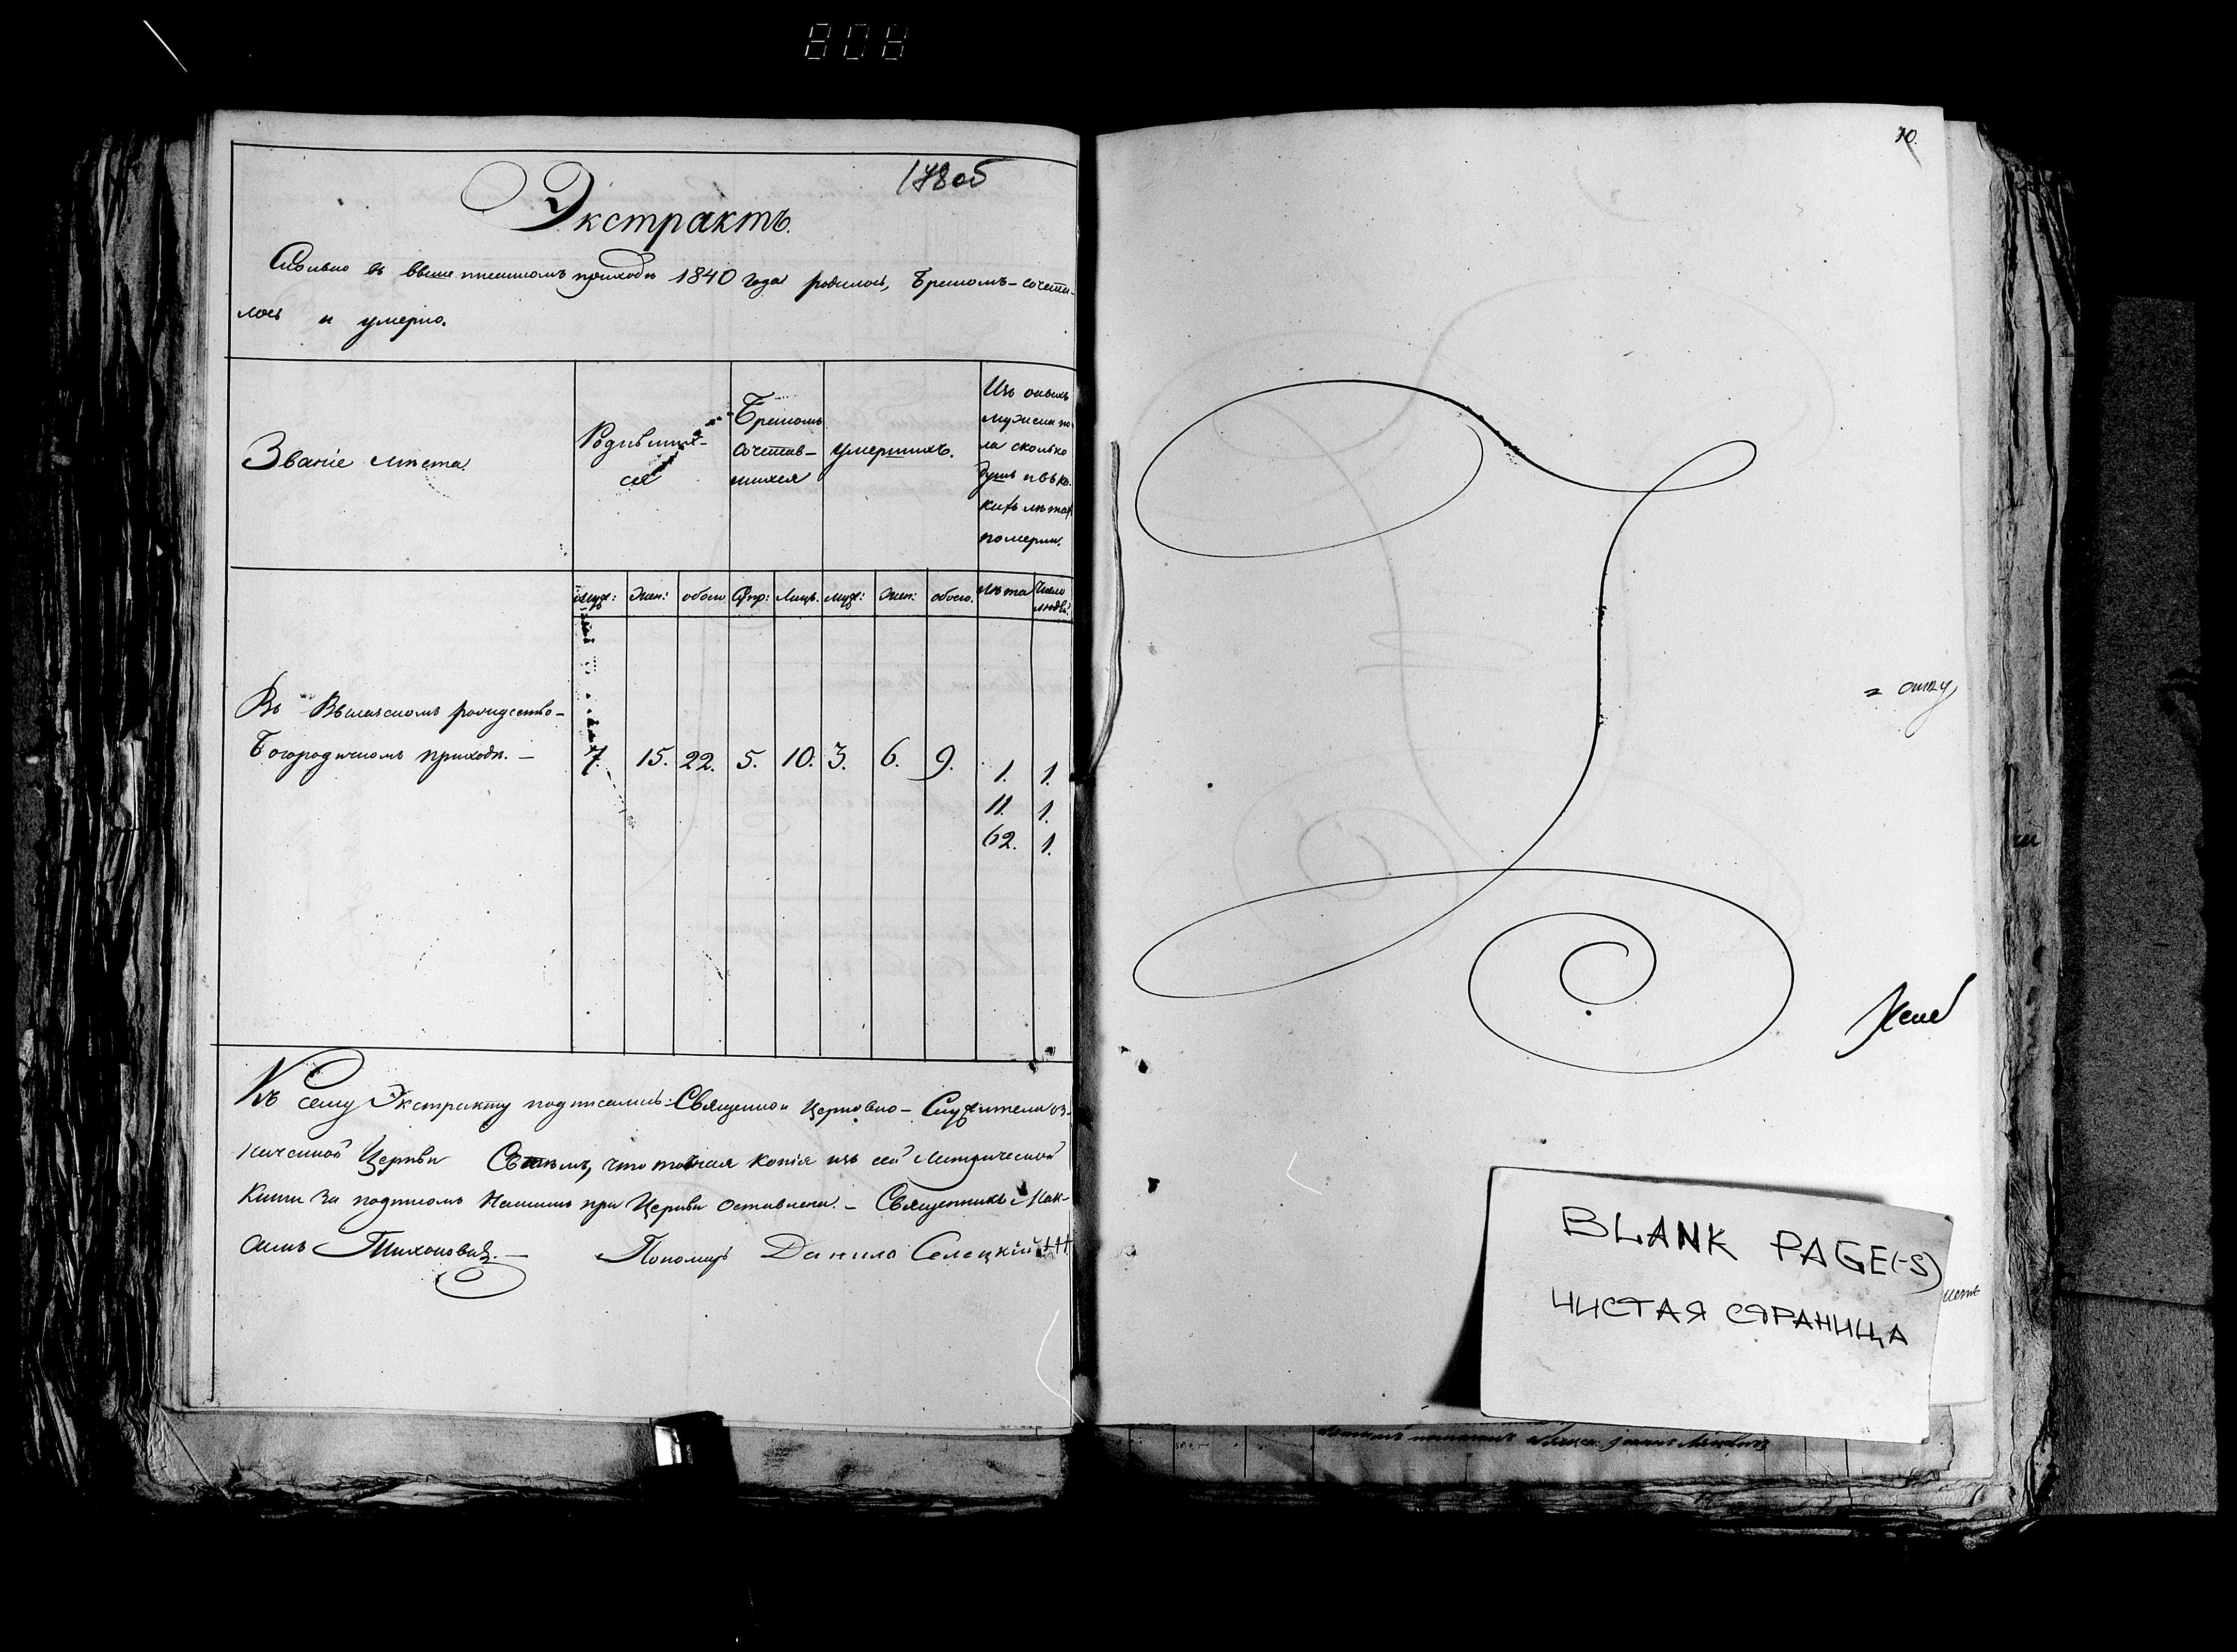 808
178об
Экстрактъ.
Сколько въ вышеписанномъ приходѣ 1840 года родилось, бракомъ-сочета-
лось и умерло.
Званіе мѣста
Родивших-
ся
Бракомъ
сочетав-
шихся
умершихъ.
Изъ оныхъ
мужска по-
ла сколько
душъ и въ ка-
кихъ лѣтах
померли.
муж: Жен: обоего Супр: Лицъ. муж: Жен: обоего. Лѣта Число людей.
Въ рождество-
Богородичномъ приходѣ. — 7. 15. 22. 5. 10. 3. 6. 9. 1. 1.
11. 1.
62. 1.
Къ сему Экстракту подписались: Священно и Церковно-Служители оз-
наченной Церкви Съ тѣмъ, что точная копія изъ сей Метрической
Книги за подписомъ Нашимъ при Церкви оставлена. — Священникъ Мак-
симъ Тихоновичъ. — Пономарь Данило Селецкій
10.
BLANK PAGE(-S)
ЧИСТАЯ СТРАНИЦА